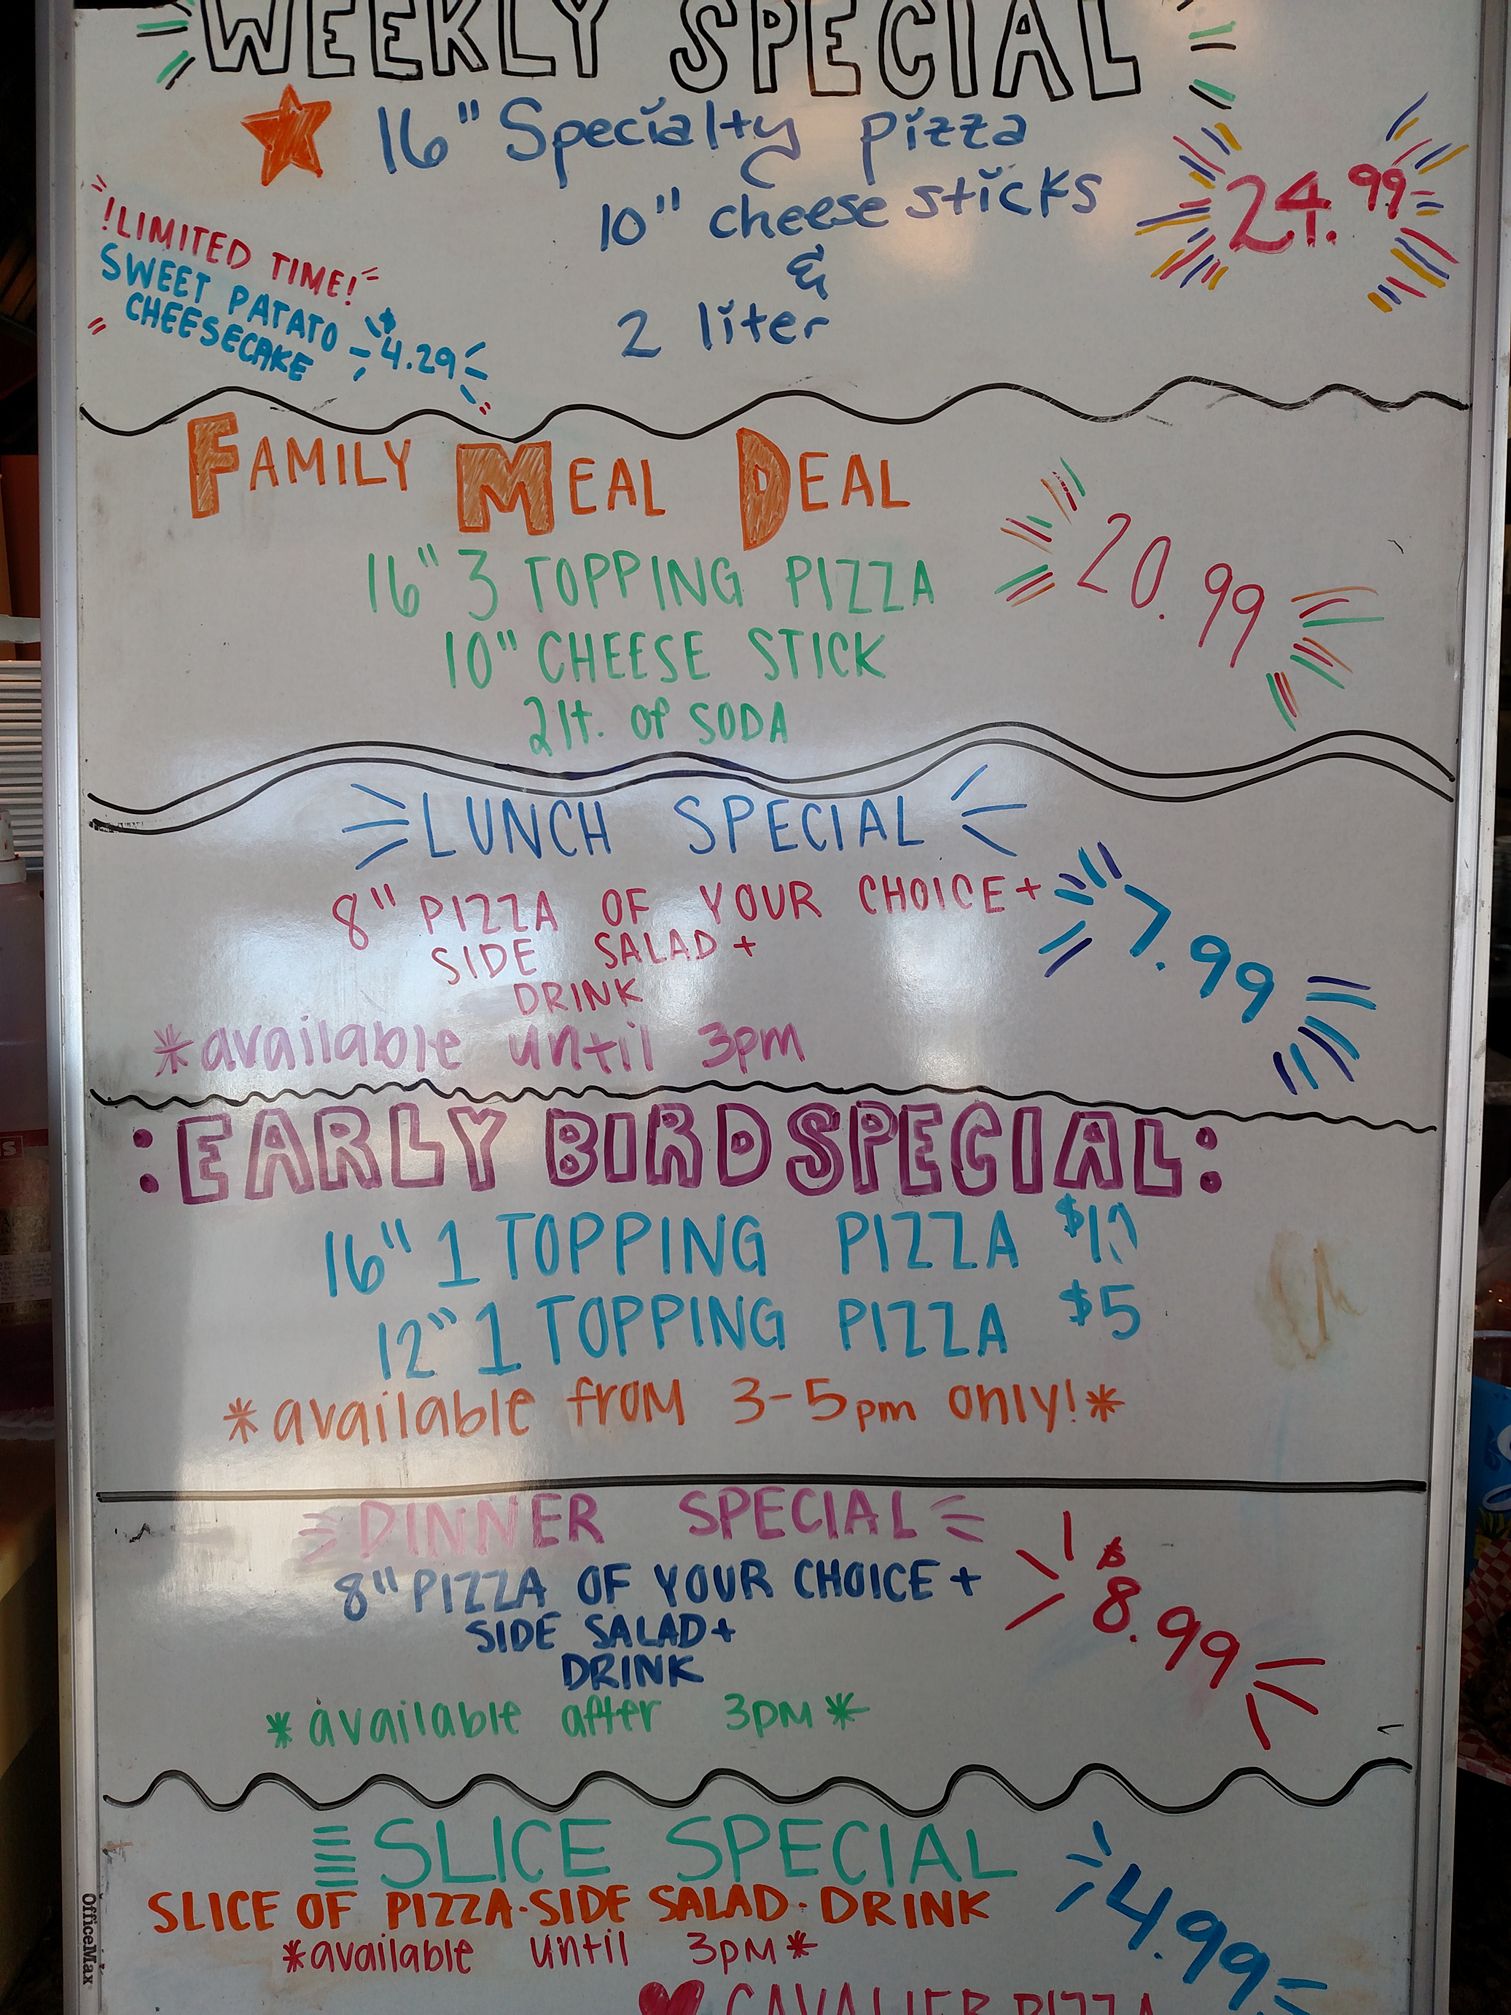 WEEKLY SPECIAL
16" Specialty pizza
10" cheese sticks
&
2 liter
24.99
!LIMITED TIME!
SWEET PATATO
CHEESECAKE
$4.29
FAMILY MEAL DEAL
16" 3 TOPPING PIZZA
10" CHEESE STICK
2 lt. of SODA
20.99
LUNCH SPECIAL
8" PIZZA OF YOUR CHOICE +
SIDE SALAD +
DRINK
7.99
*available until 3pm
:EARLY BIRD SPECIAL:
16" 1 TOPPING PIZZA
12" 1 TOPPING PIZZA $5
*available from 3-5pm only!*
DINNER SPECIAL
8" PIZZA OF YOUR CHOICE +
SIDE SALAD +
DRINK
$8.99
*available after 3pm*
SLICE SPECIAL
SLICE OF PIZZA · SIDE SALAD · DRINK
4.99
*available until 3pm*
CAVALIER PIZZA
OfficeMax